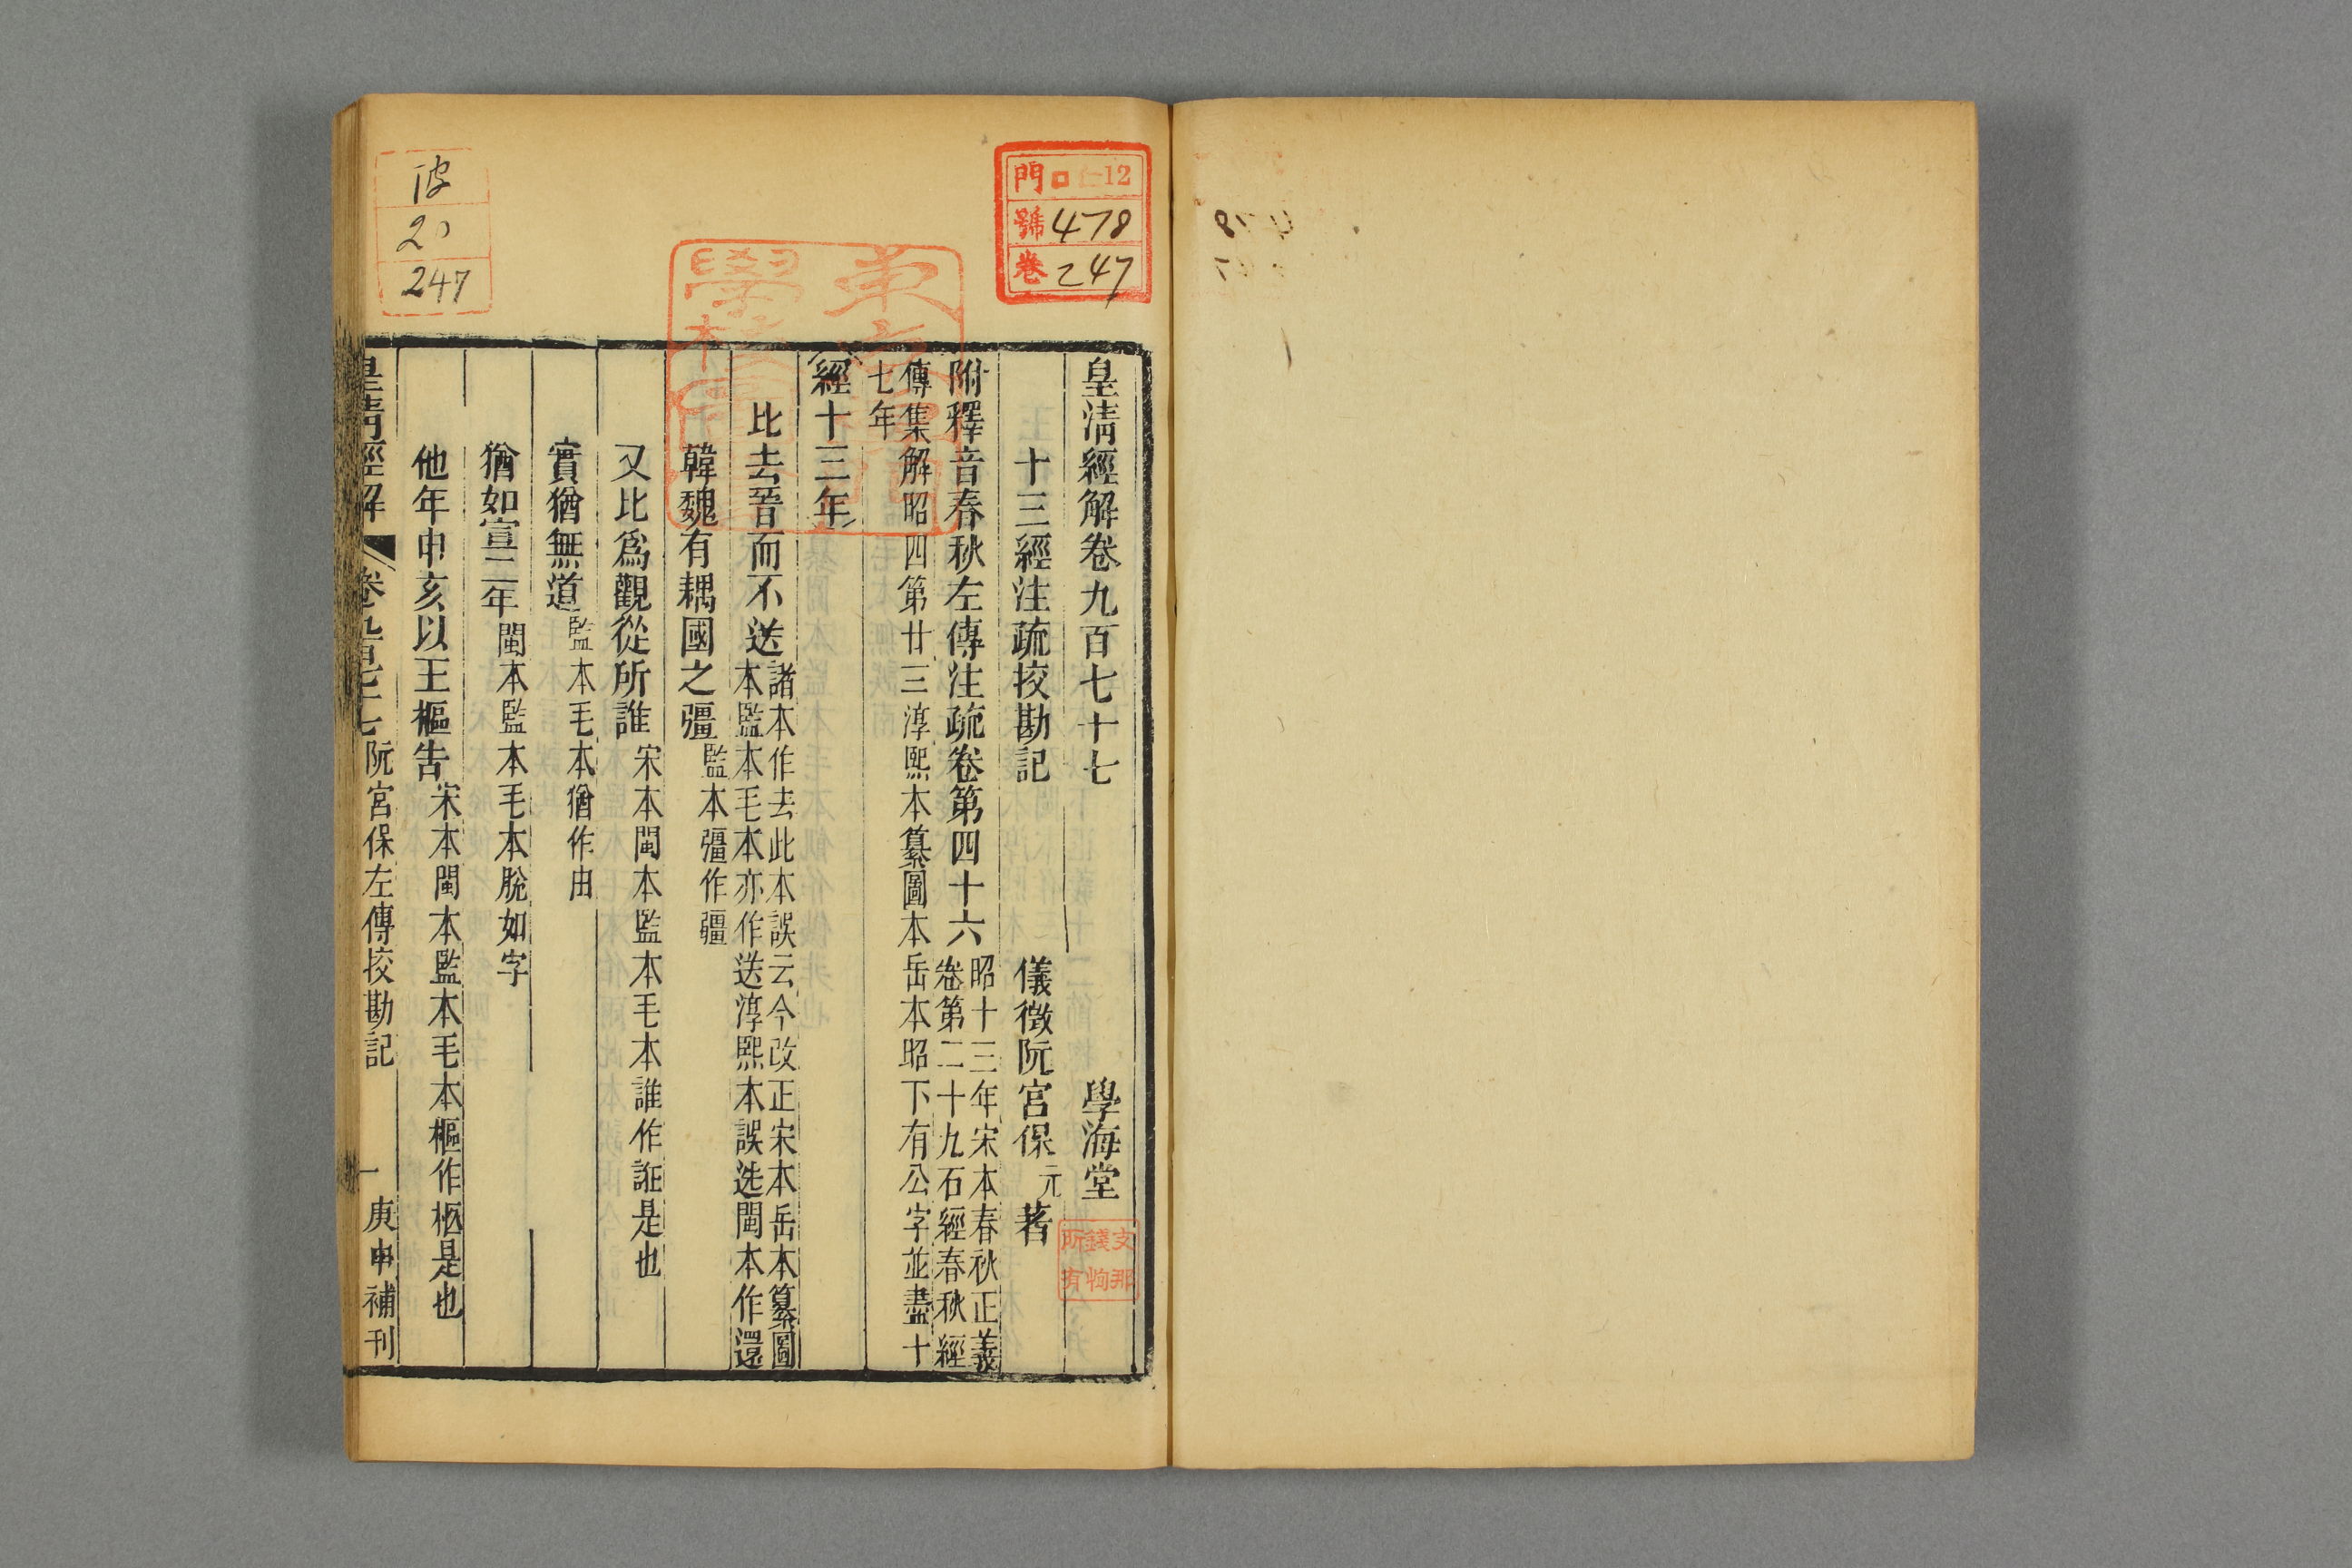 皇淸經解卷九百七十七 學海堂
十三經注疏挍勘記 儀徵阮宮保元著
附釋音春秋左傳注疏卷第四十六 昭十三年宋本春秋正義
卷第二十九石經春秋經
傳集解昭四第廿三淳熙本纂圖本岳本昭下有公字並盡十
七年
經十三年
比去晉而不送 諸本作去此本誤云今改正宋本岳本纂圖
本監本毛本亦作送淳熙本誤迭閩本作還
韓魏有耦國之彊 監本彊作疆
又比爲觀從所誰 宋本閩本監本毛本誰作誑是也
實猶無道 監本毛本猶作由
猶如宣二年 閩本監本毛本脫如字
他年申亥以王樞告 宋本閩本監本毛本樞作柩是也
皇淸經解 卷九百七十七 阮宮保左傳挍勘記 一 庚申補刊
門 12
號 478
卷 247
彼
20
247
支那
錢恂
所有